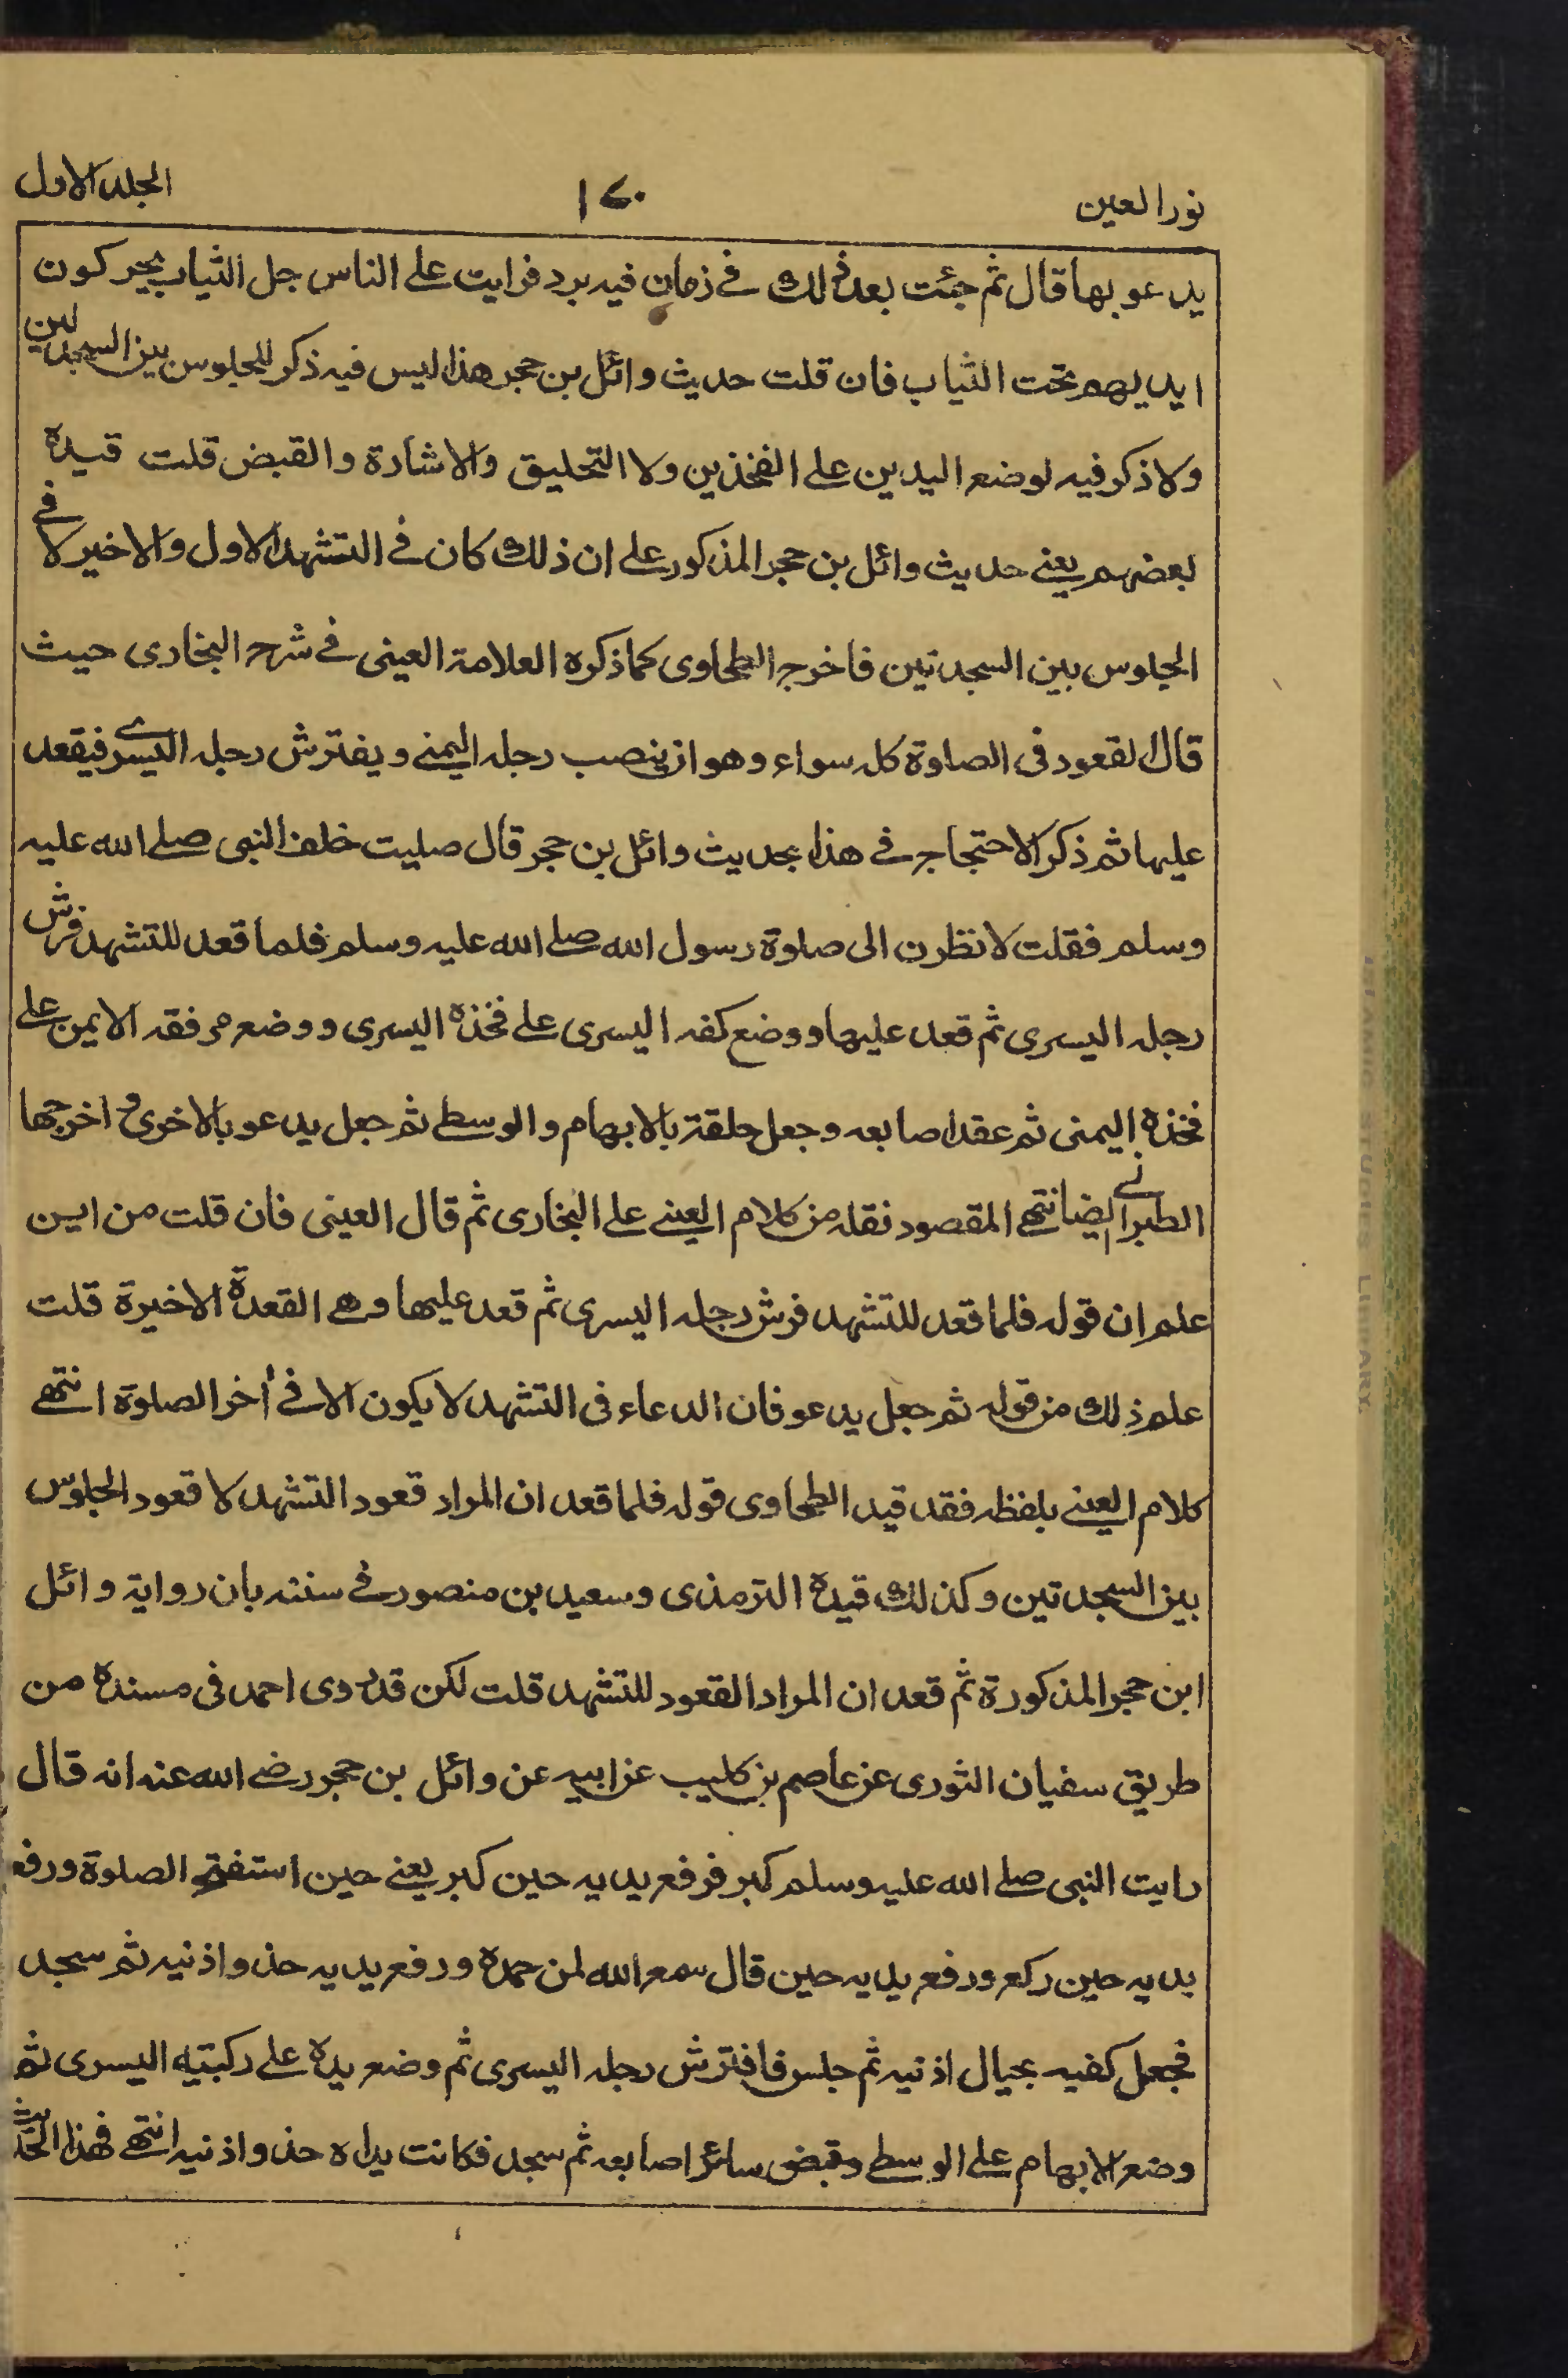 نور العين ١٧٠ الجلد الاول
يدعو بها قال ثم جئت بعد ذلك في زمان فيه برد فرايت على الناس جل الثياب يحركون
ايديهم تحت الثياب فان قلت حديث وائل بن حجر هذا ليس فيه ذكر للجلوس بين السجدتين
ولا ذكر فيه لوضع اليدين على الفخذين ولا التحليق والاشارة والقبض قلت قيده
بعضهم يعني حديث وائل بن حجر المذكور على ان ذلك كان في التشهد الاول والاخير لا في
الجلوس بين السجدتين فاخرج الطحاوى كما ذكره العلامة العينى في شرح البخارى حيث
قال القعود فى الصلوة كله سواء وهو ان ينصب رجله اليمنى ويفترش رجله اليسرى فيقعد
عليها ثم ذكر الاحتجاج في هذا بحديث وائل بن حجر قال صليت خلف النبى صلى الله عليه
وسلم فقلت لانظرن الى صلوة رسول الله صلى الله عليه وسلم فلما قعد للتشهد فرش
رجله اليسرى ثم قعد عليها ووضع كفه اليسرى على فخذه اليسرى ووضع مرفقه الايمن على
فخذه اليمنى ثم عقد اصابعه وجعل حلقة بالابهام والوسطى ثم جعل يدعو بالاخرى واخرجها
الطبراني ايضا انتهى المقصود نقله من كلام العينى على البخارى ثم قال العينى فان قلت من اين
علم ان قوله فلما قعد للتشهد فرش رجله اليسرى ثم قعد عليها وهي القعدة الاخيرة قلت
علم ذلك من قوله ثم جعل يدعو فان الدعاء فى التشهد لا يكون الا في أخر الصلوة انتهى
كلام العينى بلفظه فقد قيد الطحاوى قوله فلما قعد ان المراد قعود التشهد لا قعود الجلوس
بين السجدتين وكذلك قيده الترمذى وسعيد بن منصور في سننه بان رواية وائل
ابن حجر المذكورة ثم قعد ان المراد القعود للتشهد قلت لكن قد روى احمد فى مسنده من
طريق سفيان الثورى عن عاصم بن كليب عن ابيه عن وائل بن حجر رضي الله عنه انه قال
رايت النبى صلى الله عليه وسلم كبر فرفع يديه حين كبر يعني حين استفتح الصلوة ورفع
يديه حين ركع ورفع يديه حين قال سمع الله لمن حمده ورفع يديه حذو اذنيه ثم سجد
فجعل كفيه بحيال اذنيه ثم جلس فافترش رجله اليسرى ثم وضع يده على ركبتيه اليسرى ثم
وضع الابهام على الوسطى وقبض سائر اصابعه ثم سجد فكانت يداه حذو اذنيه انتهى فهذا الحديث